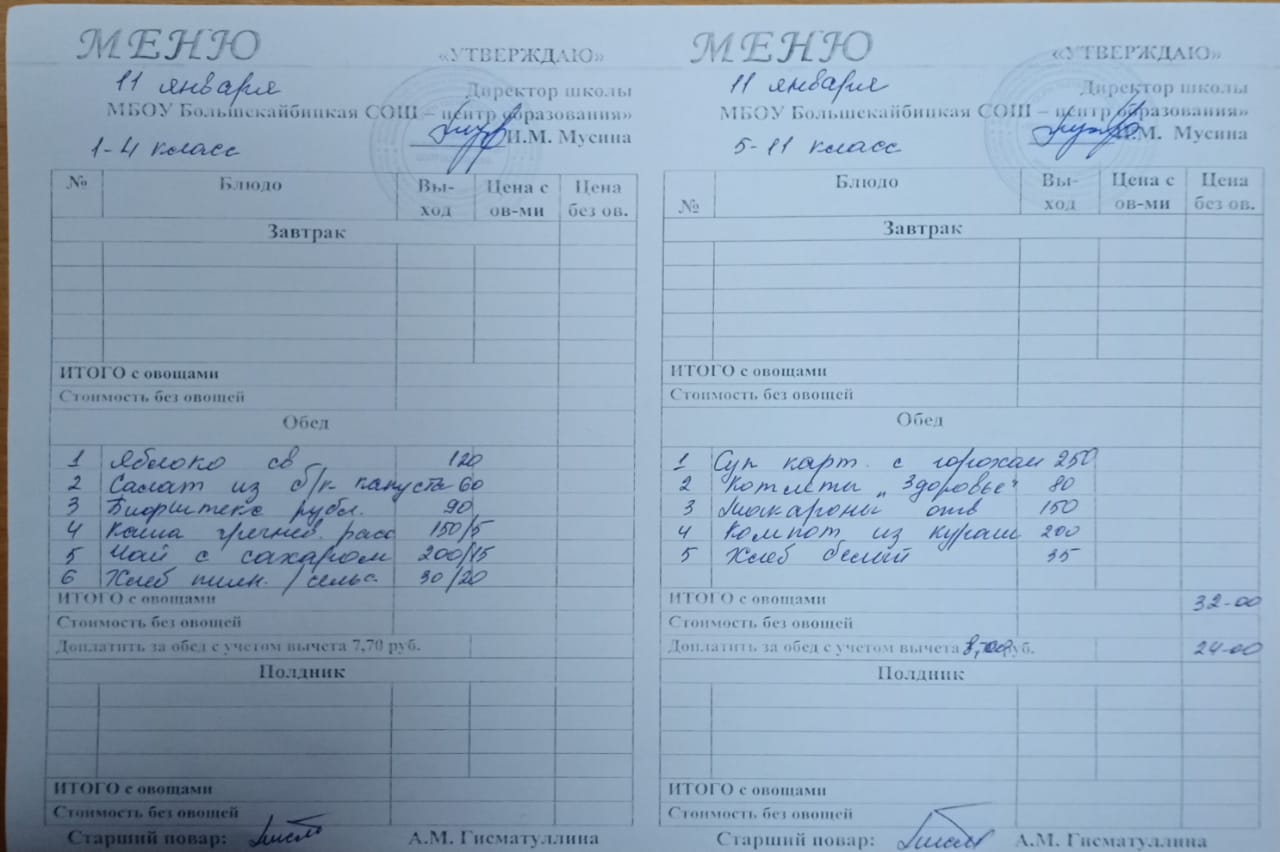 МЕНЮ
«УТВЕРЖДАЮ»
11 января
Директор школы
МБОУ Большекайбицкая СОШ – центр образования»
И.М. Мусина
1-4 класс
№ Блюдо Вы-ход Цена с ов-ми Цена без ов.
Завтрак
ИТОГО с овощами
Стоимость без овощей
Обед
1 Яблоко св 120
2 Салат из б/к капуста 60
3 Бифштекс рубл. 90
4 Каша гречнев. расс 150/5
5 Чай с сахаром 200/15
6 Хлеб пшен. / сельс. 30/20
ИТОГО с овощами
Стоимость без овощей
Доплатить за обед с учетом вычета 7,70 руб.
Полдник
ИТОГО с овощами
Стоимость без овощей
Старший повар: А.М. Гисматуллина
МЕНЮ
«УТВЕРЖДАЮ»
11 января
Директор школы
МБОУ Большекайбицкая СОШ – центр образования»
И.М. Мусина
5-11 класс
№ Блюдо Вы-ход Цена с ов-ми Цена без ов.
Завтрак
ИТОГО с овощами
Стоимость без овощей
Обед
1 Суп карт. с горохом 250
2 Котлеты „Здоровье" 80
3 Макароны отв 150
4 Компот из кураги 200
5 Хлеб белый 35
ИТОГО с овощами 32-00
Стоимость без овощей
Доплатить за обед с учетом вычета руб. 24-00
Полдник
ИТОГО с овощами
Стоимость без овощей
Старший повар: А.М. Гисматуллина